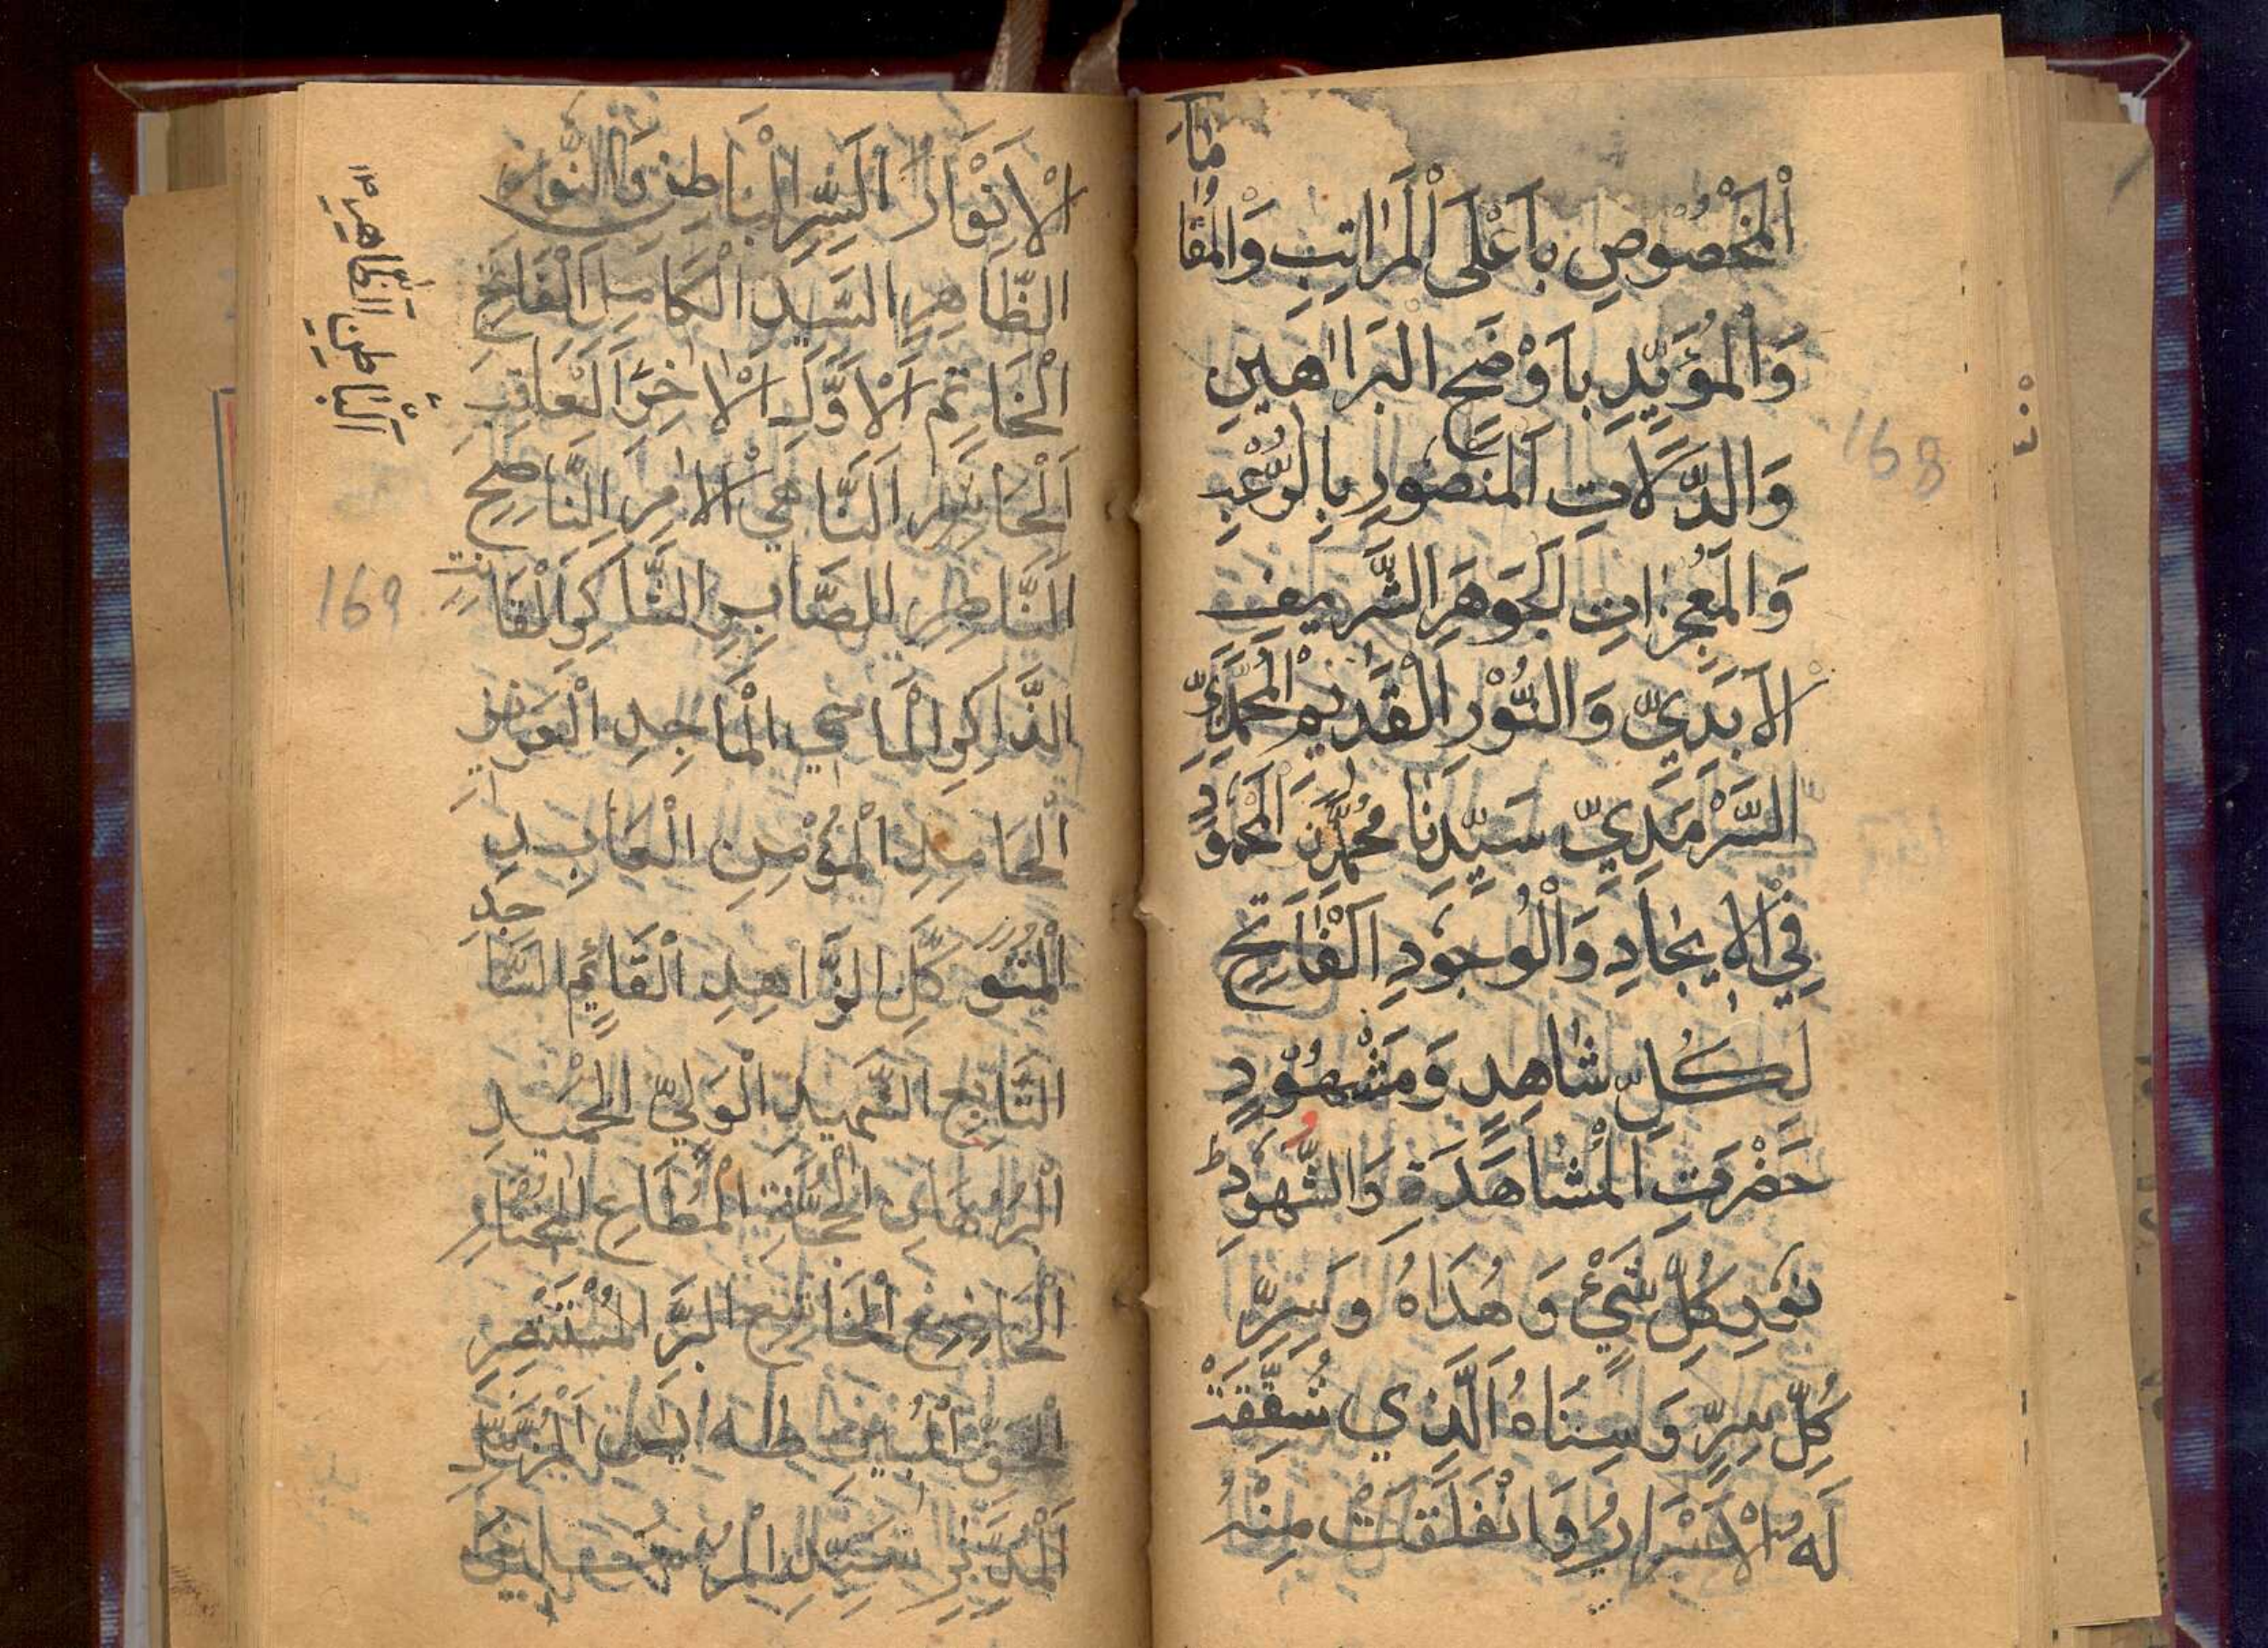 اَلْمَخْصُوْصِ بِاَعْلَى الْمَرَاتِبِ وَالْمُقَا
مَاتِ
وَالْمُؤَيَّدِ بِاَوْضَحِ الْبَرَاهِيْنِ
وَالدَّلَالَاتِ الْمَنْصُوْرِ بِالرُّعْبِ
وَالْمُعْجِزَاتِ الْجَوْهَرِ الشَّرِيْفِ
الْاَبَدِيِّ وَالنُّوْرِ الْقَدِيْمِ الْمُحَمَّدِيِّ
السَّرْمَدِيِّ سَيِّدِنَا مُحَمَّدٍ الْمَحْمُوْدِ
فِي الْاِيْجَادِ وَالْوُجُوْدِ الْفَاتِحِ
لِكُلِّ شَاهِدٍ وَمَشْهُوْدٍ
حَضْرَتِ الْمُشَاهَدَةِ وَالشُّهُوْدِ ط
نُوْرِ كُلِّ شَيْءٍ وَهُدَاهُ وَسِرِّ
كُلِّ سِرٍّ وَسِنَاهُ الَّذِي شُقِّقَتْ
لَهُ الْاَسْرَارُ وَانْفَلَقَتْ مِنْهُ
168
الْاَنْوَارُ السِّرِّ الْبَاطِنِ وَالنُّوْرِ
الظَّاهِرِ السَّيِّدِ الْكَامِلِ الْفَاتِحِ
الْخَاتِمِ الْاَوَّلِ الْاٰخِرِ الْعَاقِبِ
اَلْحَاشِرِ النَّاهِي الْاٰمِرِ النَّاصِحِ
النَّاصِرِ الصَّابِرِ الشَّاكِرِ الْقَا
نِتِ
الذَّاكِرِ الْمَاحِي الْمَاجِدِ الْعَزِيْزِ
الْحَامِدِ الْمُؤْمِنِ الْعَابِدِ
الْمُتَوَكِّلِ الزَّاهِدِ الْقَائِمِ السَّا
جِدِ
التَّابِعِ الشَّهِيْدِ الْوَلِيِّ الْحَمِيْدِ
الْبُرْهَانِ الْحُجَّةِ الْمُطَاعِ الْمُخْتَارِ
الْخَاضِعِ الْخَاشِعِ الْبَرِّ الْمُسْتَنْصِرِ
الْحَقِّ الْمُبِيْنِ طٰهٰ يٰسٓ الْمُزَّمِّلِ
الْمُدَّثِّرِ سَيِّدِ الْمُرْسَلِيْنَ
اَلْبَاطِنِ الظَّاهِرِ
169